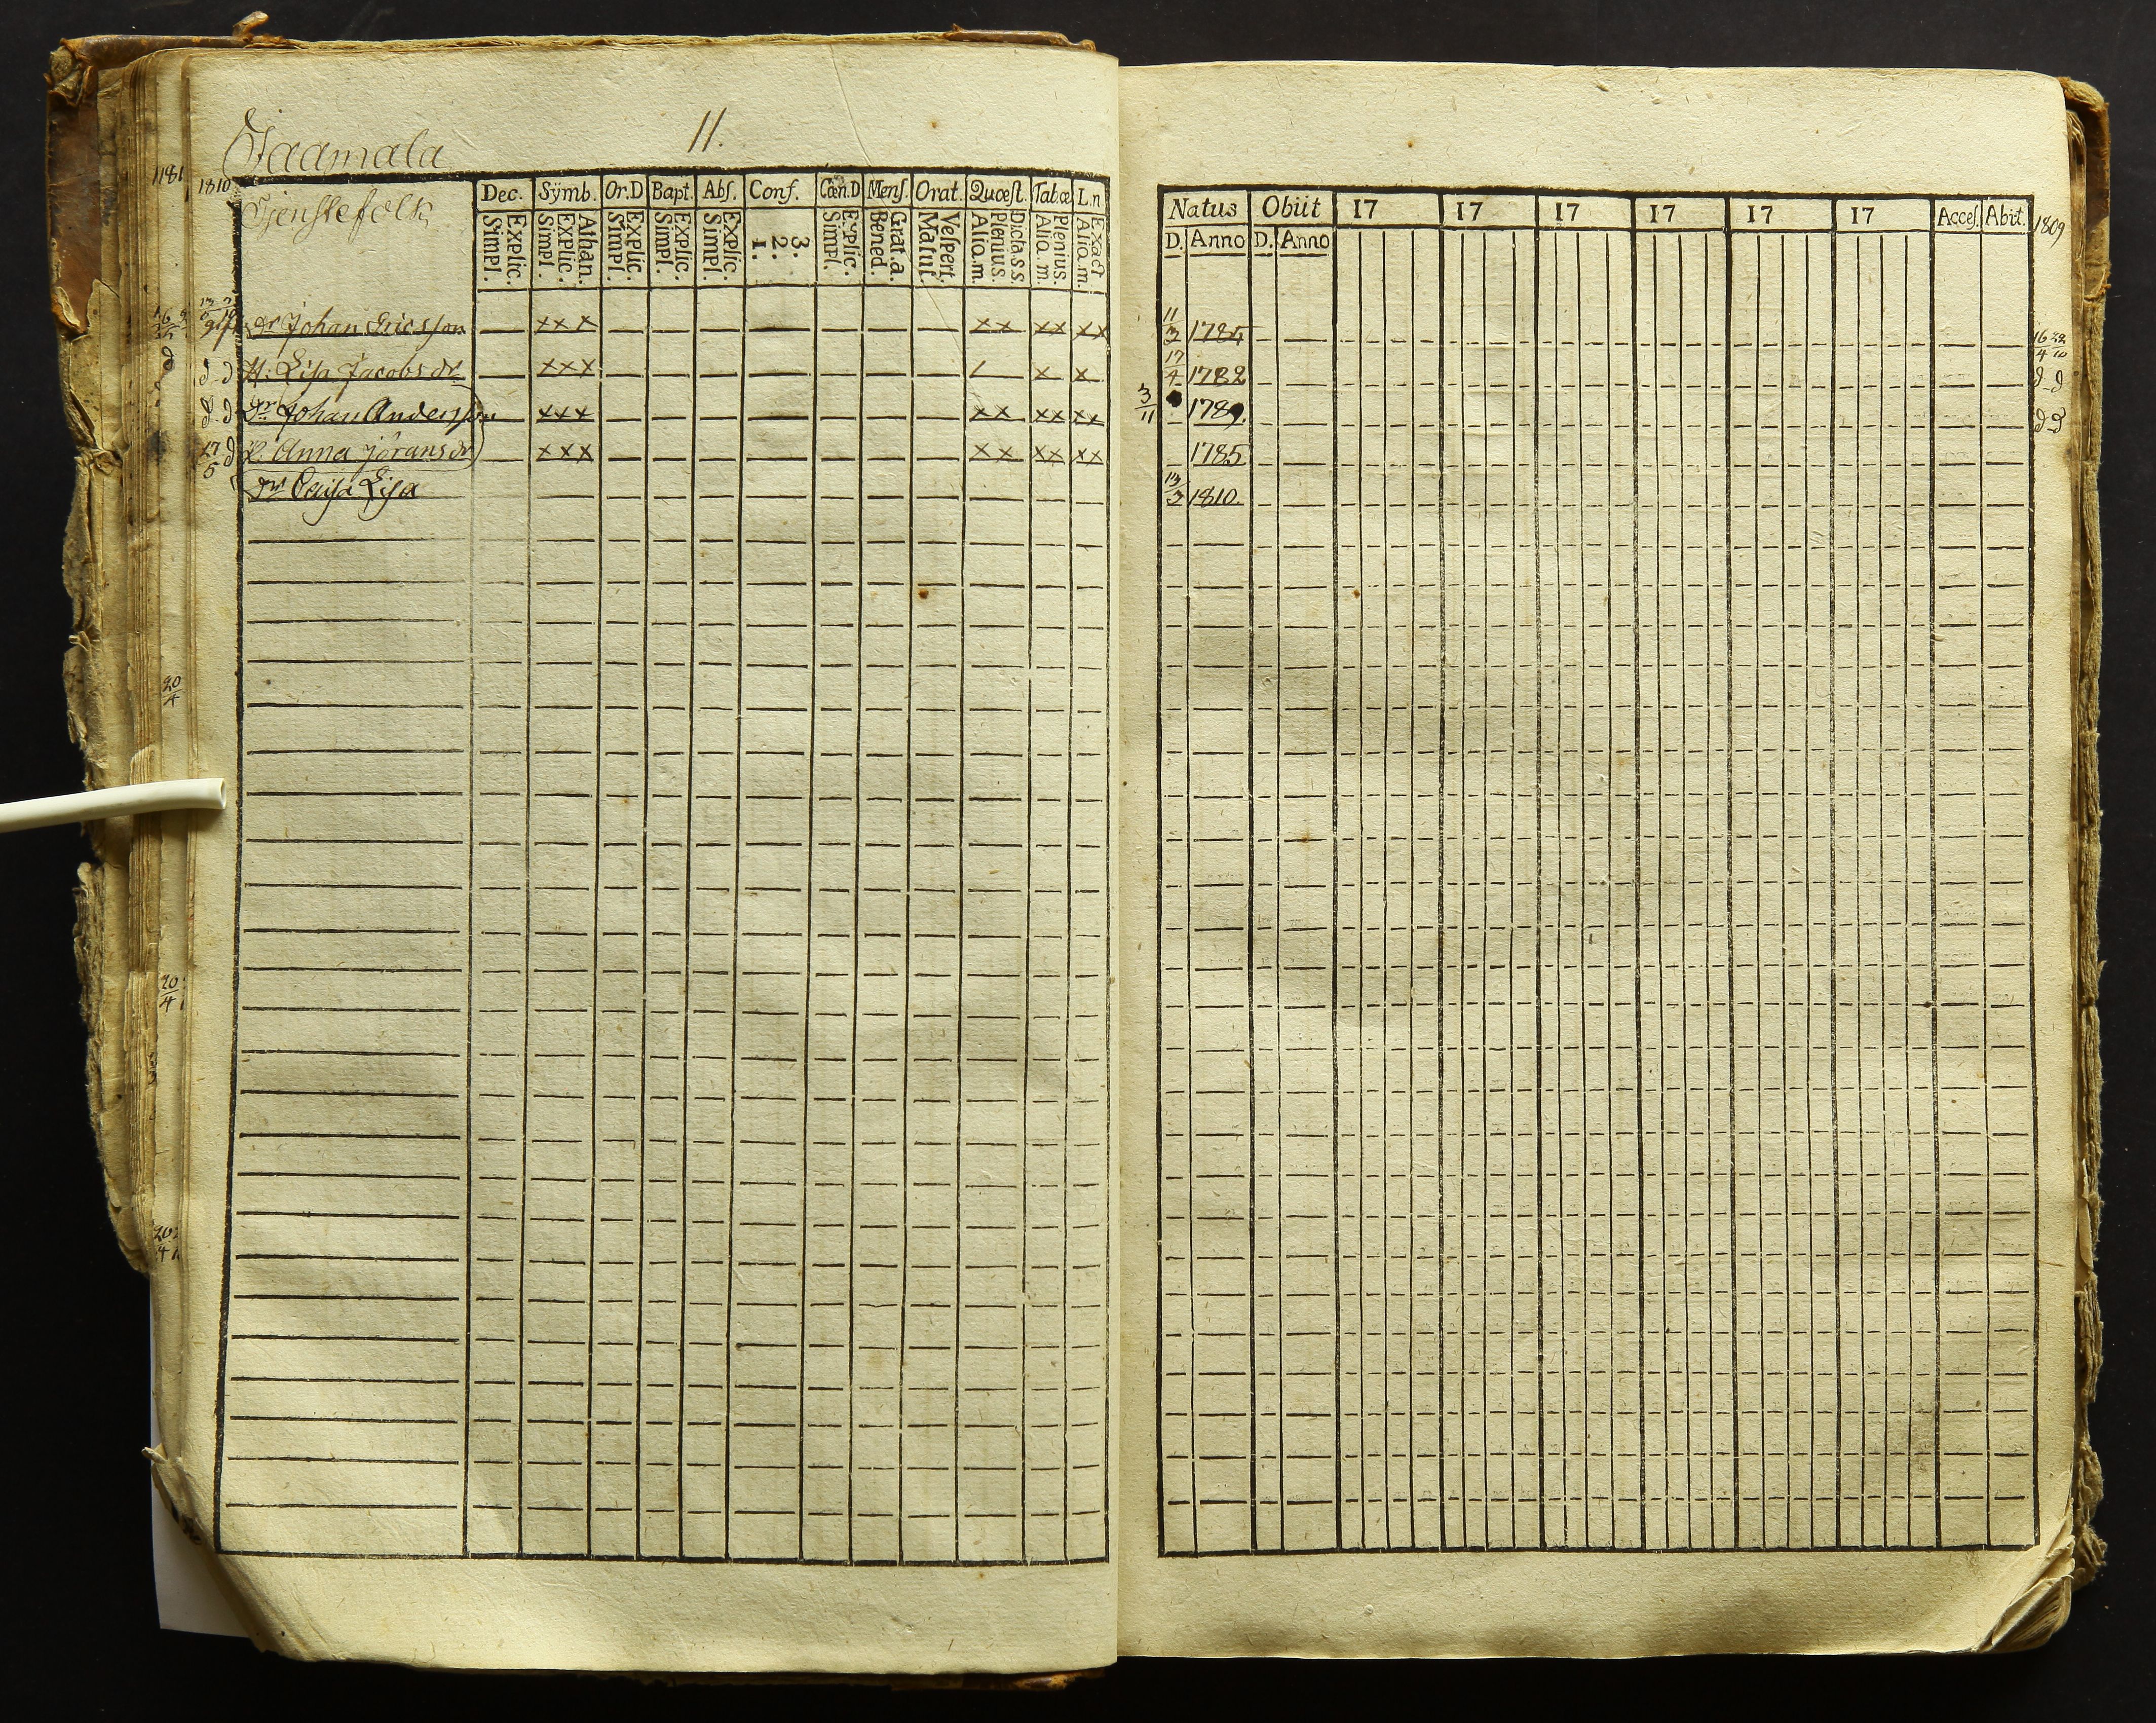 Jaamala 11.
1181 1810
Tjenstefolk
Dec. Sÿmb. Or.D Bapt. Abſ. Conf. Cœn.D Menſ. Orat. Quœſt. Tabœ L.n
Simpl. Explic. Simpl. Explic. Athan. Simpl. Explic. Simpl. Explic. Simpl. Explic. 1. 2. 3. Simpl. Explic. Bened. Grat.a. Matut. Veſpert. Aliq.m. Plenius. Dicta.s.s. Aliq.m. Plenius. Aliq.m. Exact
Natus Obiit 17 17 17 17 17 17 Acceſ. Abit. 1809
D. Anno D. Anno
Dr Johan Ericsson xxx xx xx xx 11/3 1784 16/4 22/10
H: Lisa Jacobs dr xxx / x x 17/4 1782 d d
d d Dr Johan Andersson xxx xx xx xx 3/11 1789. d d
27/5 d P. Anna Jörans dr xxx xx xx xx 1785
Dr Caisa Lisa 13/3 1810.
20/4
20/4